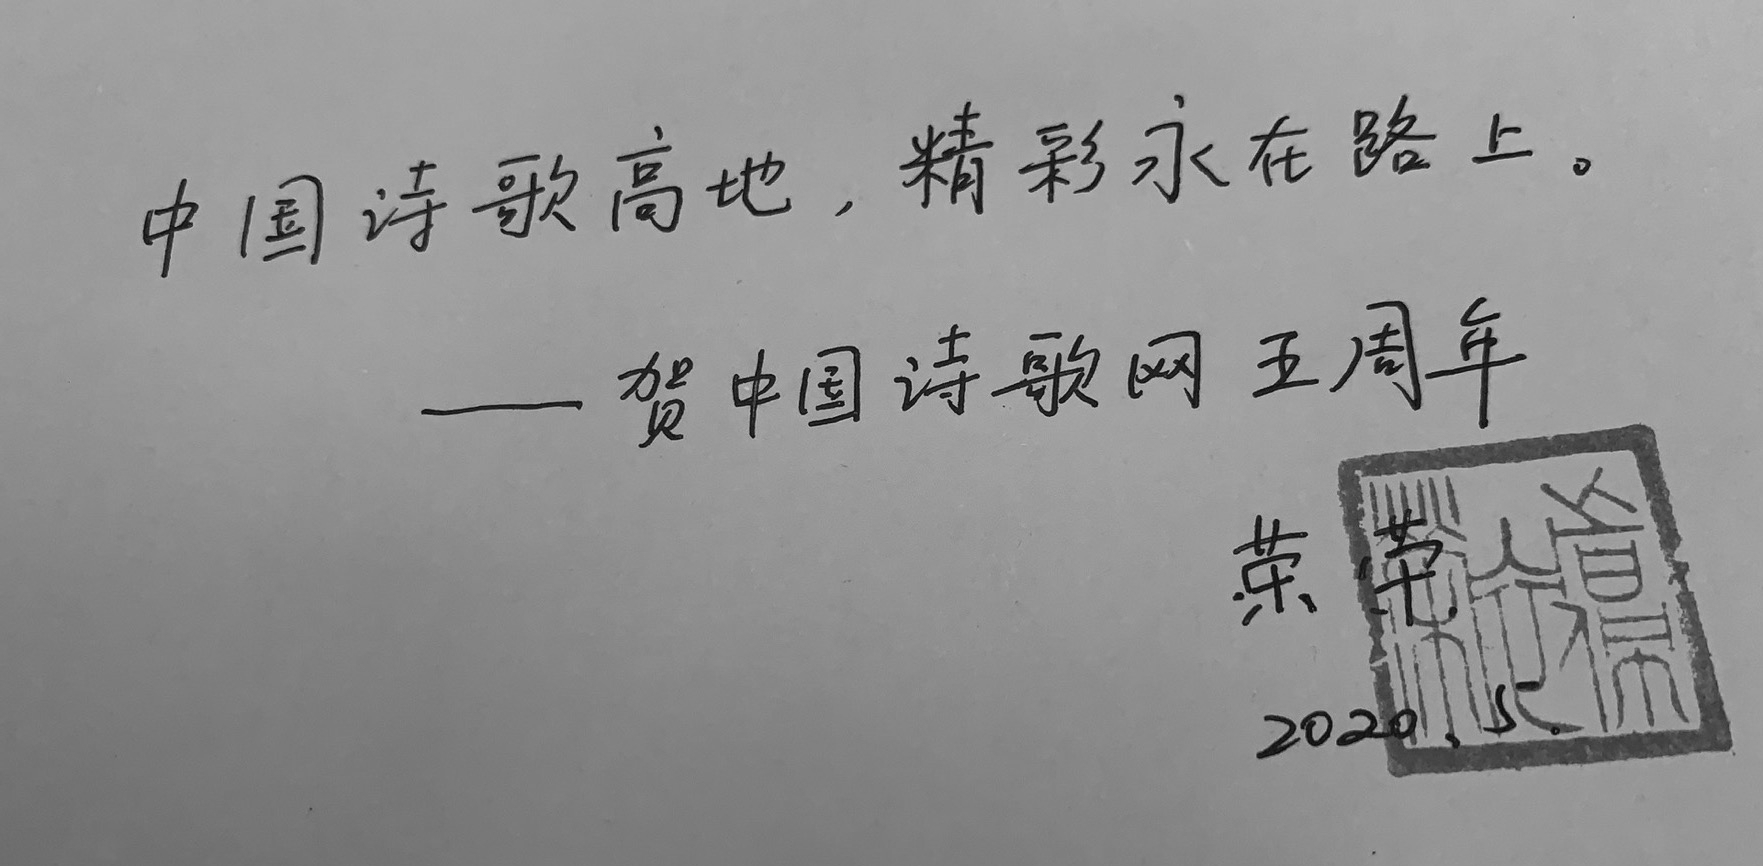 中国诗歌高地，精彩永在路上。
——贺中国诗歌网五周年
荣荣
2020.5.